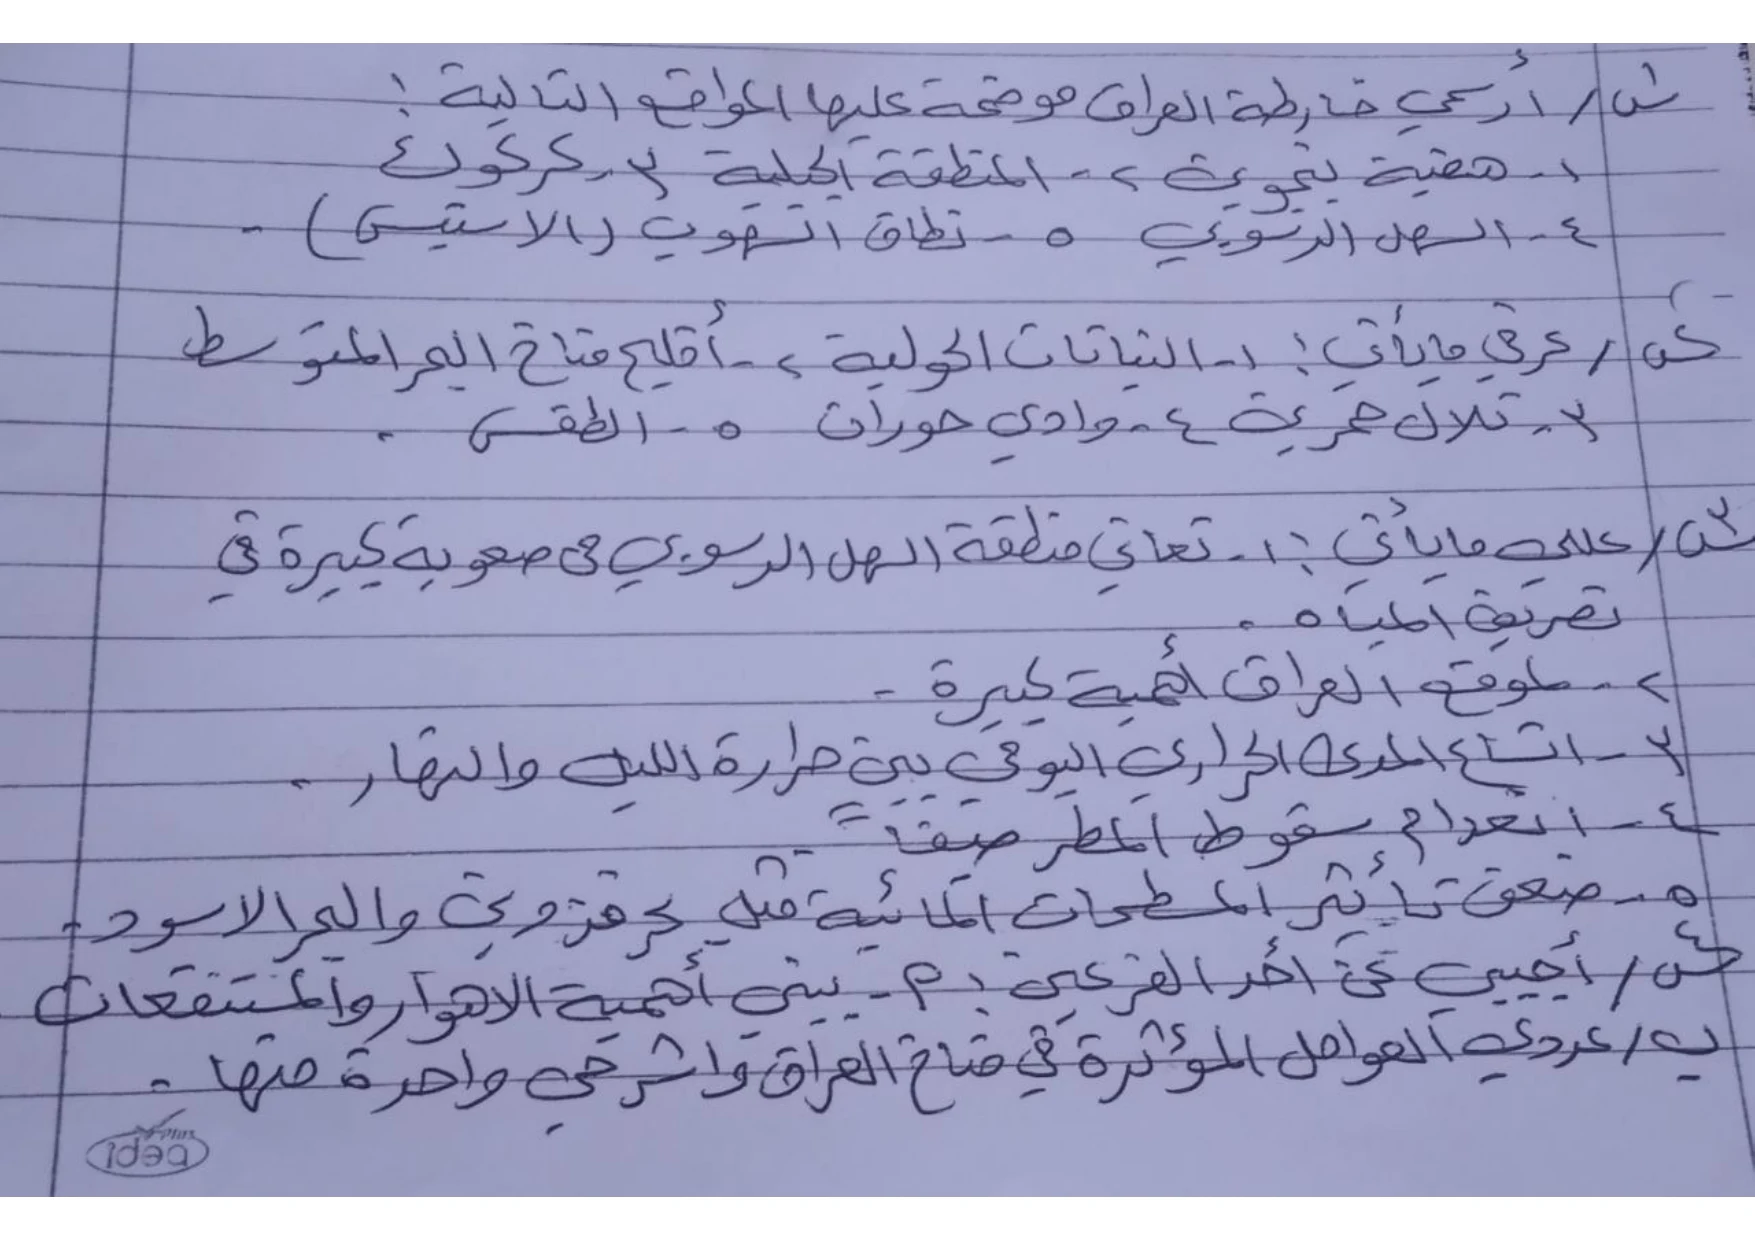 س١/ أرسمي خارطة العراق موضحة عليها المواقع التالية :
١- هضبة نينوى ٢- المنطقة الجبلية ٣- كركوك
٤- السهل الرسوبي ٥- نطاق السهوب (الاستيبس) .
س٢/ عرفي مايأتي : ١- النباتات الحولية ٢- أقليم مناخ البحر المتوسط
٣- تلال حمرين ٤- وادي حوران ٥- الطقس .
س٣/ عللي مايأتي : ١- تعاني منطقة السهل الرسوبي من صعوبة كبيرة في
تصريف المياه .
٢- لموقع العراق أهمية كبيرة .
٣- اتساع المدى الحراري اليومي بين حرارة الليل والنهار .
٤- انعدام سقوط المطر صيفاً .
٥- ضعف تأثير المسطحات المائية مثل بحر قزوين والبحر الاسود .
س٤/ أجيبي عن أحد الفرعين : م- بيني أهمية الاهوار والمستنقعات
ب/ عددي العوامل المؤثرة في مناخ العراق واشرحي واحدة منها .
idea plus